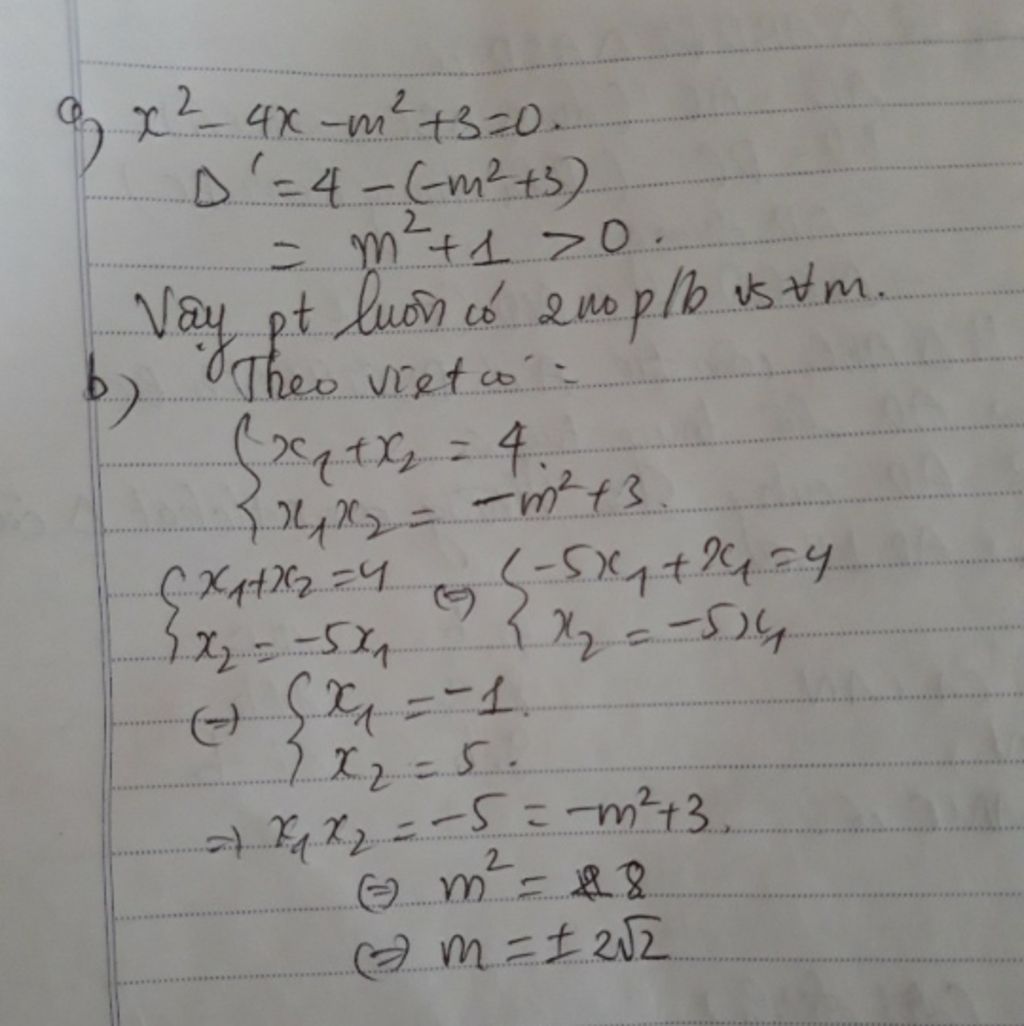 a) x² - 4x - m² + 3 = 0.
Δ' = 4 - (-m² + 3)
= m² + 1 > 0.
Vậy pt luôn có 2 no p/b vs ∀m.
b) Theo viet có:
{ x₁ + x₂ = 4.
{ x₁x₂ = -m² + 3.
{ x₁ + x₂ = 4 (=) { -5x₁ + x₁ = 4
{ x₂ = -5x₁ { x₂ = -5x₁
(=) { x₁ = -1.
{ x₂ = 5.
=> x₁x₂ = -5 = -m² + 3.
(=) m² = 8
(=) m = ± 2√2